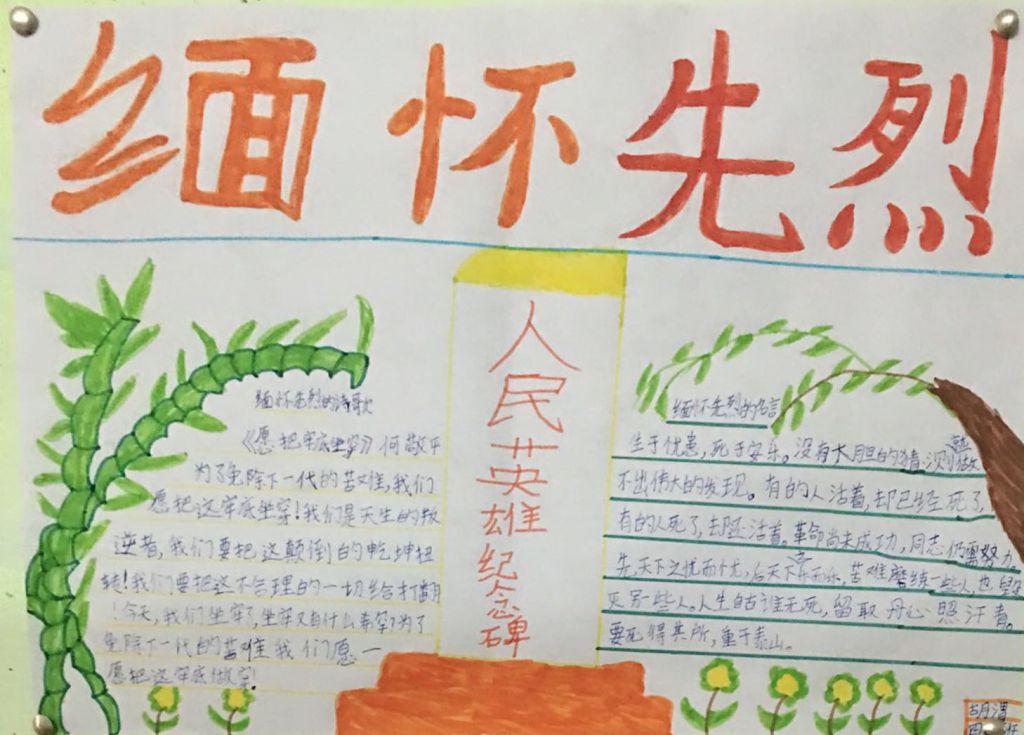 缅怀先烈
缅怀先烈的诗歌
《愿把牢底坐穿》何敬平
为了免除下一代的苦难,我们
愿把这牢底坐穿!我们是天生的叛
逆者,我们要把这颠倒的乾坤扭
转!我们要把这不合理的一切给打翻
!今天,我们坐牢了,坐牢又有什么稀罕?为了
免除下一代的苦难我们愿—
愿把这牢底做穿!
人民英雄纪念碑
缅怀先烈的名言
生于优患,死于安乐。没有大胆的猜测做
不出伟大的发现。有的人活着,却已经死了
有的人死了,却还活着。革命尚未成功,同志仍需努力。
先天下之忧而忧,后天下乐而乐。苦难磨练一些人,也毁
灭另一些人。人生自古谁无死,留取丹心照汗青。
要死得其所,重于泰山。